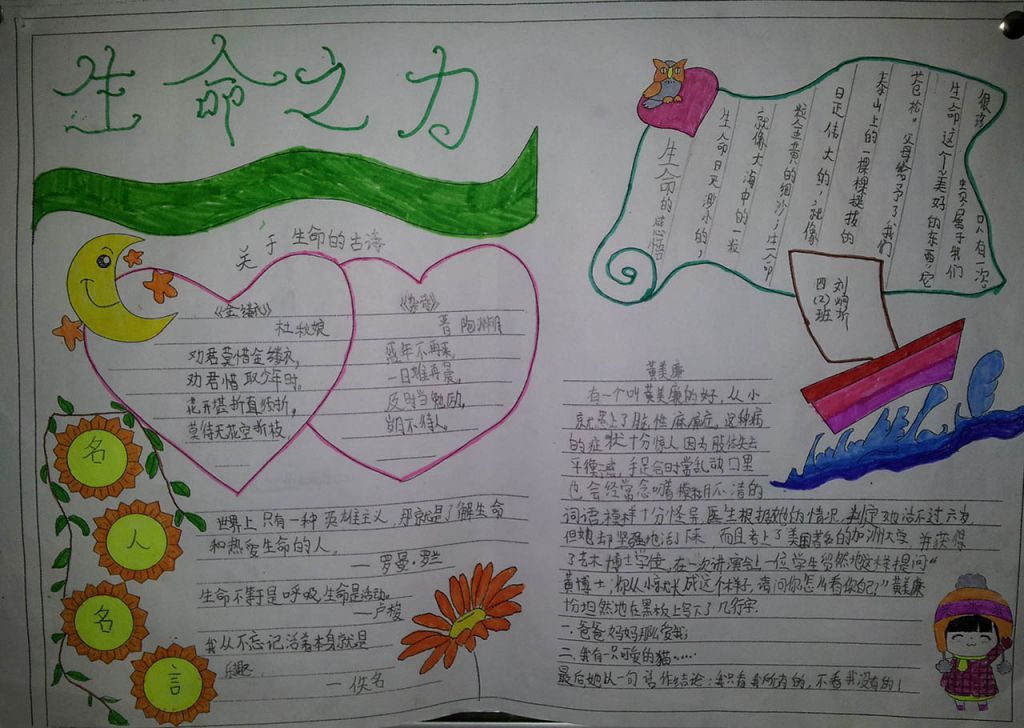 生命之力
关于生命的古诗
《金缕衣》
杜秋娘
劝君莫惜金缕衣，
劝君惜取少年时。
花开堪折直须折，
莫待无花空折枝。
《杂诗》
晋 陶渊明
盛年不再来，
一日难再晨。
及时当勉励，
岁月不待人。
名
人
名
言
世界上只有一种英雄主义，那就是了解生命
和热爱生命的人。
—罗曼·罗兰
生命不等于是呼吸，生命是活动。
—卢梭
我从不忘记活着本身就是
乐趣。
—佚名
生命的感悟
生命日天渺小的，
就像大海中的一般
粒金黄的细沙；生命
日正伟大的，就像
泰山上的一棵棵挺拔的
苍松。父母给予了我们
生命这个美好的东西，它
只有一次。
刘炳忻
四(2)班
黄美廉
有一个叫黄美廉的好，从小
就患上了脑性麻痹症。这种病
的症状十分惊人，因为肢体失去
平衡感，手足会时常乱动，口里
也会经常念叨着模糊不清的
词语，模样十分怪异。医生根据她的情况，判定她活不过六岁。
但她却坚强地活了下来，而且考上了美国著名的加州大学，并获得
了艺术博士学位。在一次讲演会上，一位学生贸然地这样提问："
黄博士，你从小就长成这个样子，请问你怎么看你自己？"黄美廉
十分坦然地在黑板上写下了几行字：
一、爸爸妈妈那么爱我；
二、我有一只可爱的猫……
最后她以一句话作结论：我只看我所有的，不看我没有的！